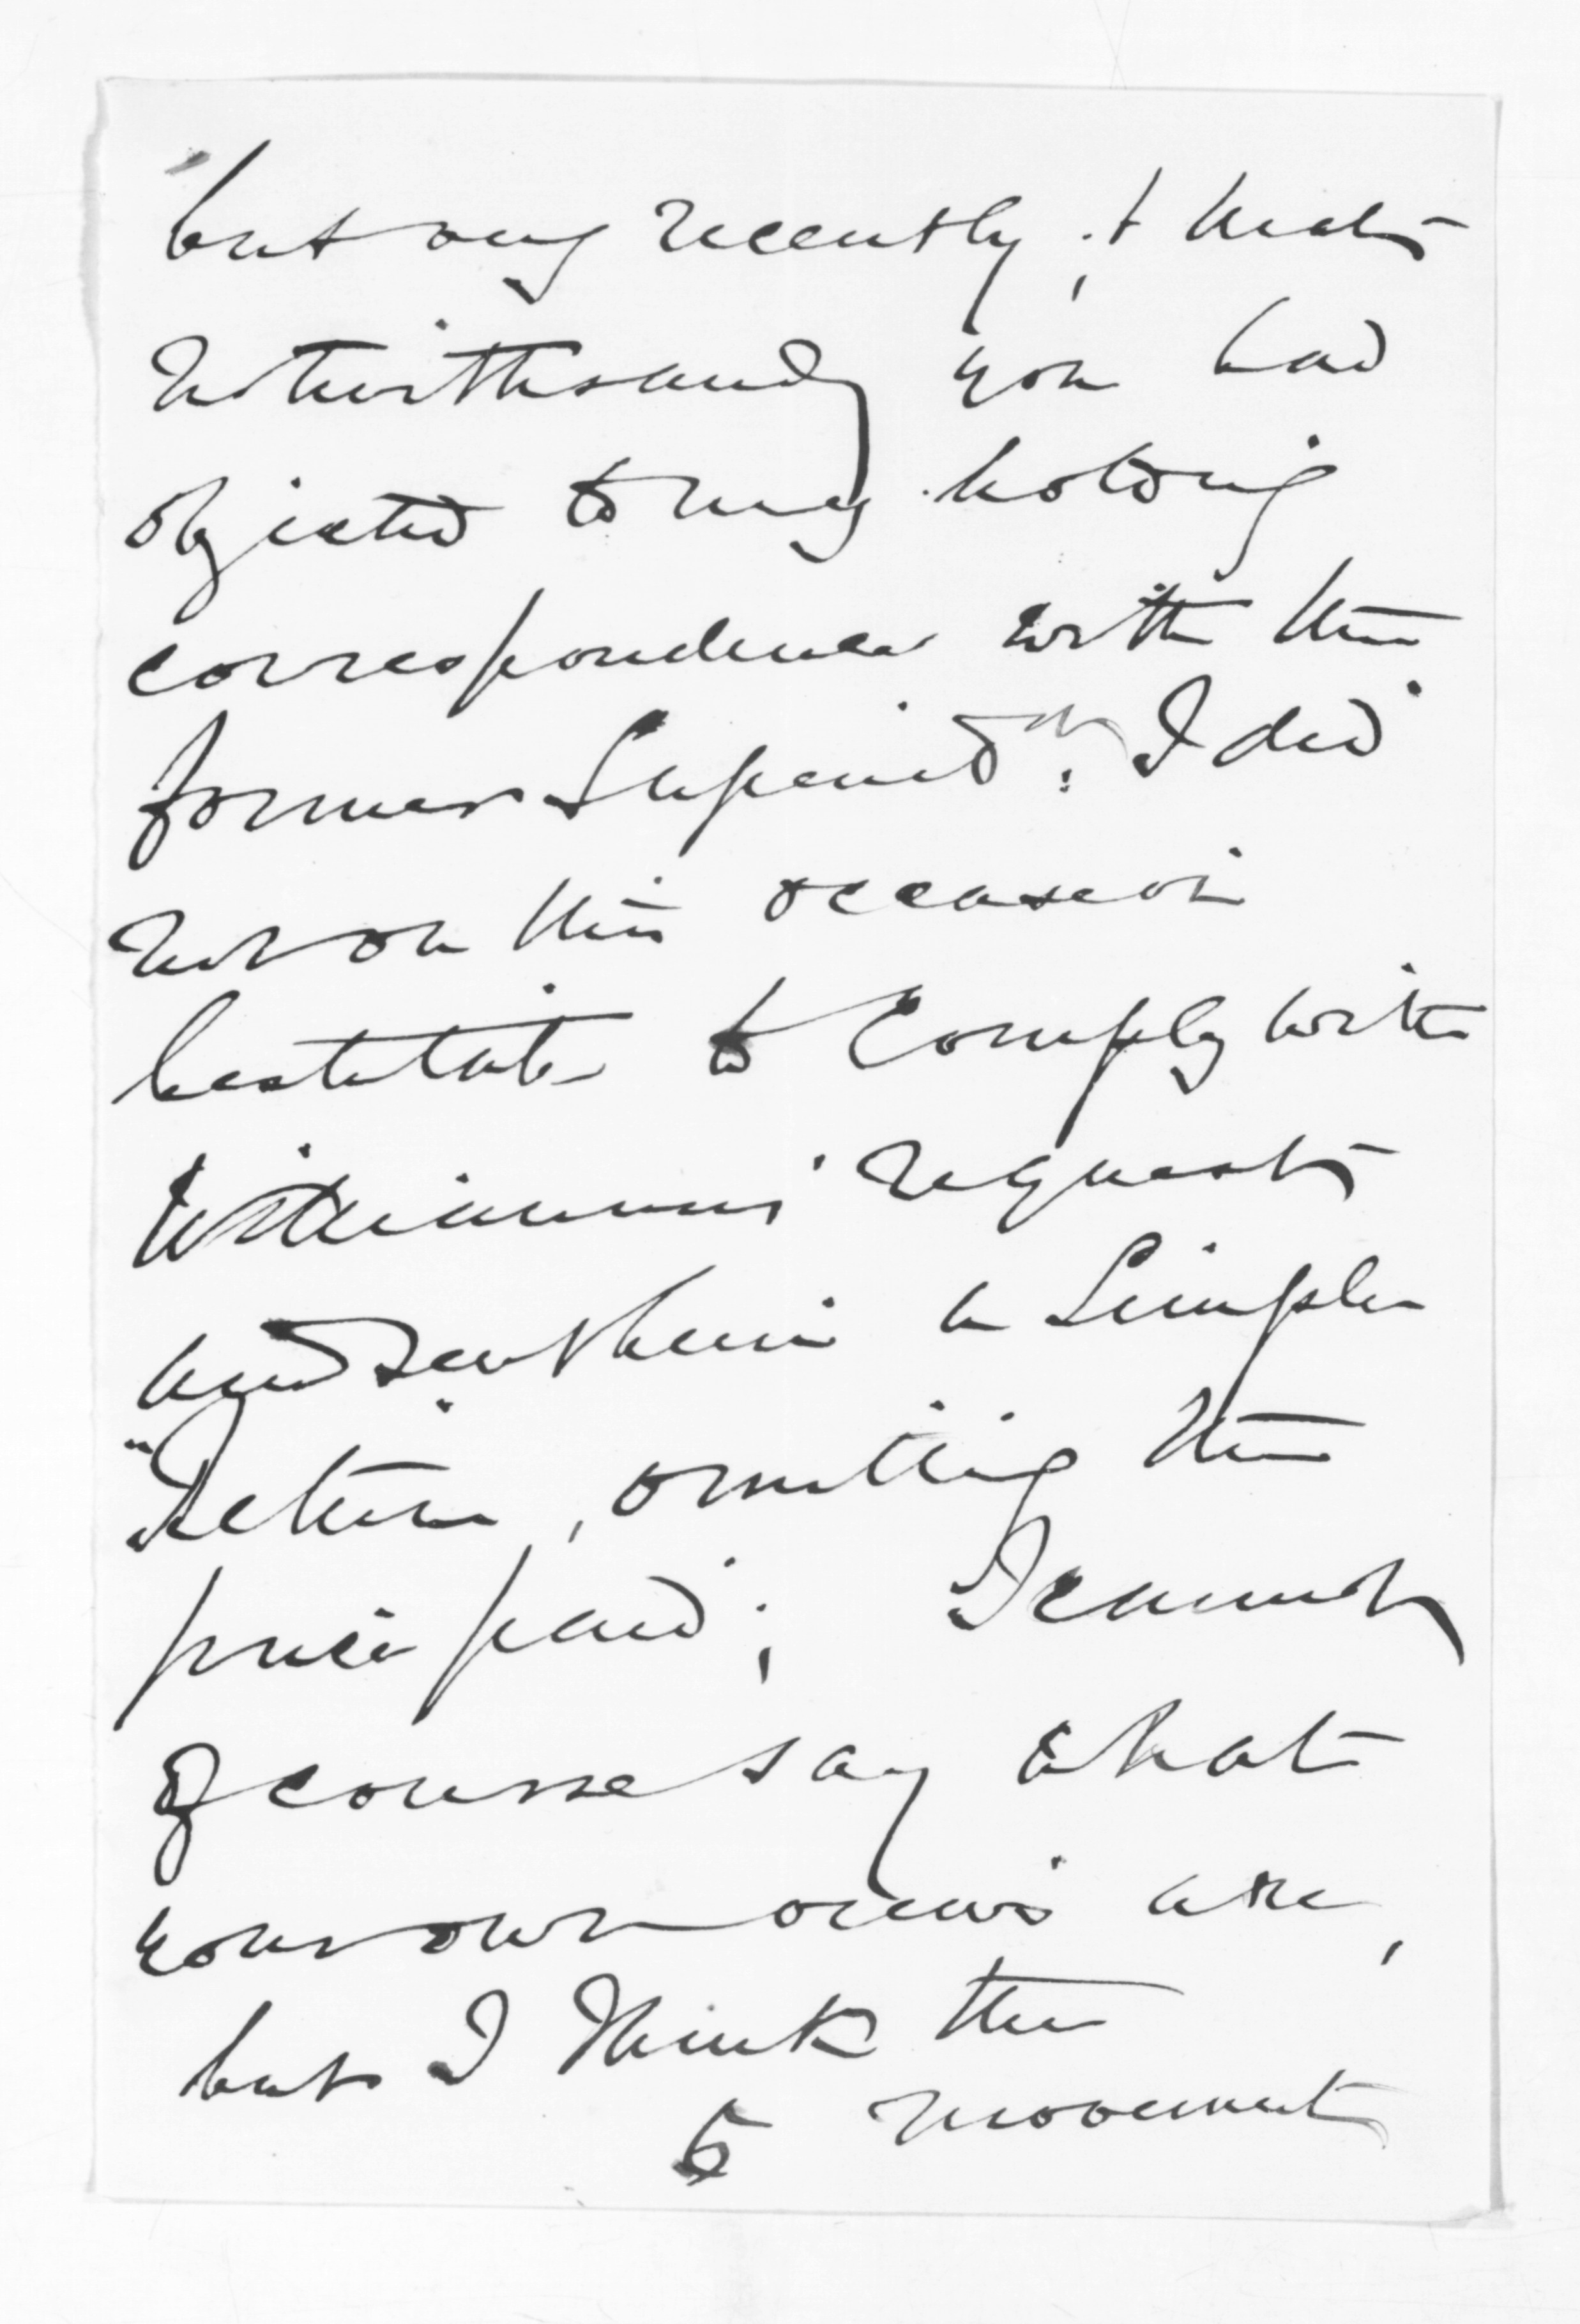 but very recently, & that
notwithsandg you had
objected to my holding
correspondence with the
former Superindt. I did
not on this occasion
hestitate to comply with
Williamsons' request
and sent him a simple
"Return", omitting the
price paid; I cannot
of course say what
your own views are,
but I think the
5 movement